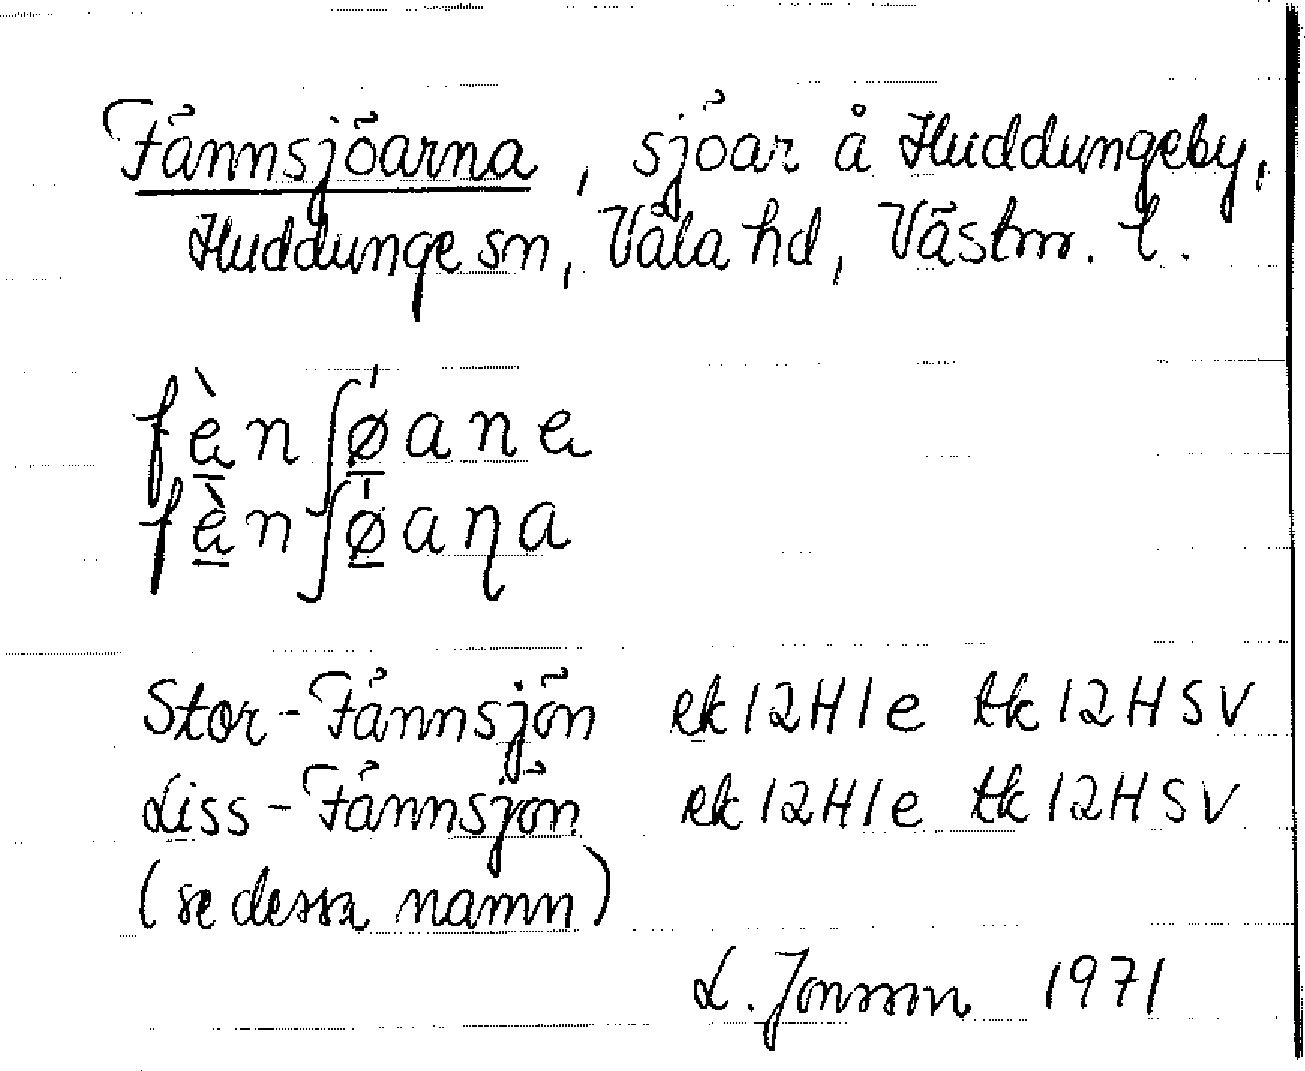 Fännsjöarna, sjöar å Huddungeby,
Huddunge sn, Våla hd, Västm. l.
fèn∫øane
fèn∫øaηa
Stor-Fännsjön rk12H1e tk12HSV
Liss-Fännsjön rk12H1e tk12HSV
(se dessa namn)
L. Jonsson 1971